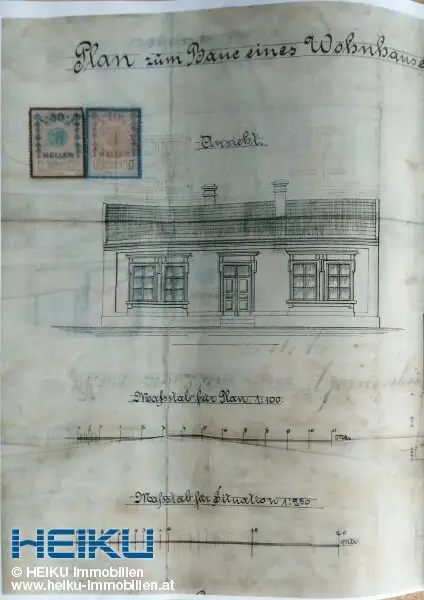 Plan zum Baue eines Wohnhause
30
HELLER
HELLER
Ansicht.
Maßstab für Plan 1:100.
Maßstab für Situation 1:250
HEIKU
© HEIKU Immobilien
www.heiku-immobilien.at